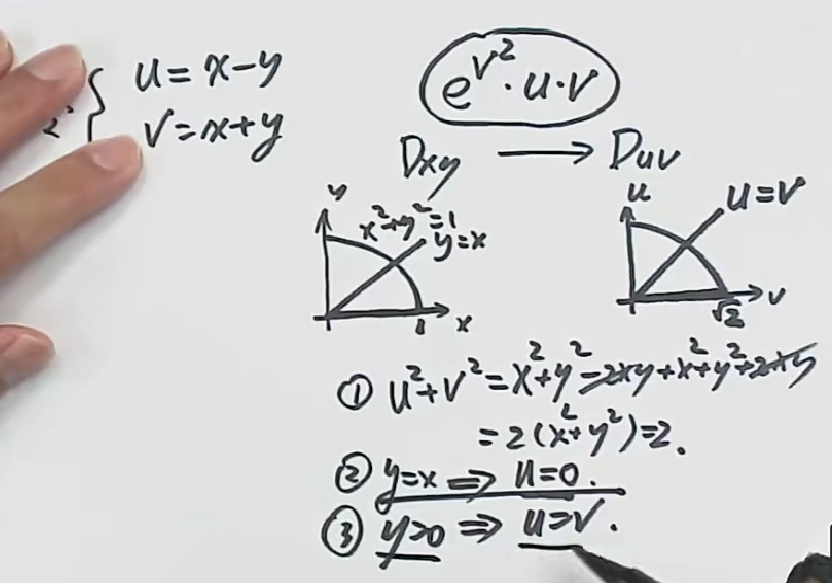 u=x-y
v=x+y
e^{v^2}·u·v
Dxy ⟶ Duv
y
x²+y²=1
y=x
1
x
u
u=v
√2
v
① u²+v²=x²+y²-2xy+x²+y²+2xy
=2(x²+y²)=2.
② y=x ⟹ u=0.
③ y=0 ⟹ u=v.